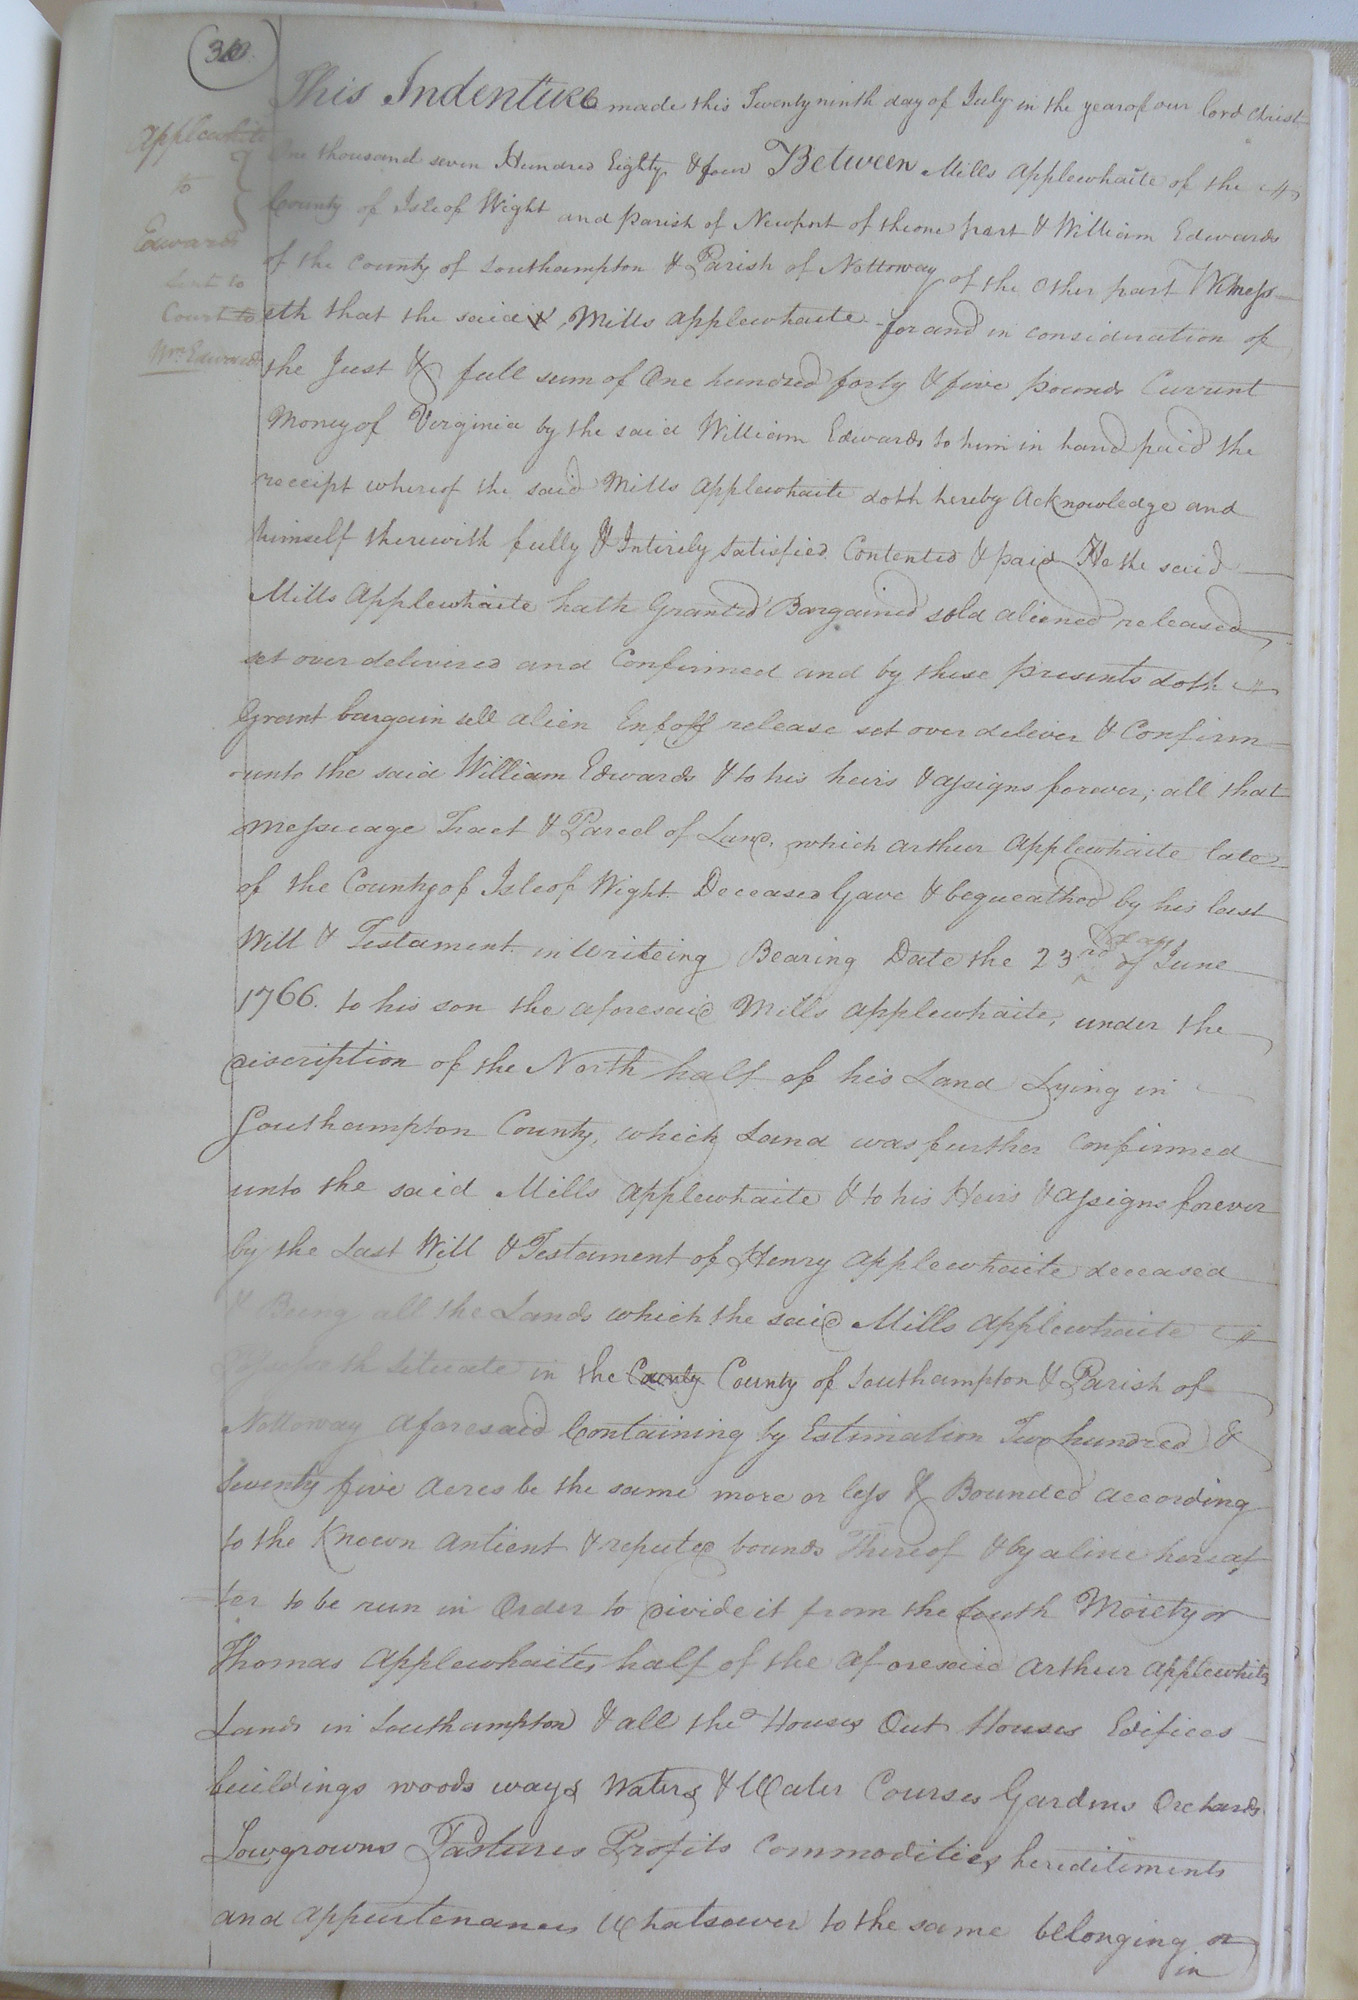 This Indenture made this Twenty ninth day of July in the year of our lord Christ
One thousand seven Hundred Eighty & four Between Mills Applewhaite of the
County of Isle of Wight and parish of Newport of the one part & William Edwards
of the County of Southampton & Parish of Nottoway of the other part Witness
eth that the said Mills Applewhaite for and in consideration of
the Just & full sum of One hundred forty & five pounds Current
Money of Virginia by the said William Edwards to him in hand paid the
receipt whereof the said Mills Applewhaite doth hereby Acknowledge and
himself therewith fully & Intirely Satisfied Contented & paid He the said
Mills Applewhaite hath Granted Bargained sold aliened released
set over delivered and Confirmed and by these presents doth
Grant bargain sell alien Enfoff release set over deliver & Confirm
unto the said William Edwards & to his heirs & assigns forever; all that
Messuage Tract & Parcel of Land, which Arthur Applewhaite late
of the County of Isle of Wight Deceased Gave & bequeathed by his last
Will & Testament in Writeing Bearing Date the 23rd day of June
1766. to his son the aforesaid Mills Applewhaite, under the
discription of the North half of his Land Lying in
Southampton County, which Land was further confirmed
unto the said Mills Applewhaite & to his Heirs & assigns forever
by the Last Will & Testament of Henry Applewhaite deceased
& Being all the Lands which the said Mills Applewhaite
situate in the County County of Southampton & Parish of
Nottoway Aforesaid Containing by Estimation Two hundred &
Seventy five Acres be the same more or less & Bounded according
to the Known Antient & reputed bounds Thereof & by a line hereaf
ter to be run in Order to divide it from the South Moiety or
Thomas Applewhaites half of the Aforesaid Arthur Applewhites
Lands in Southampton & all the Houses Out Houses Edifices
buildings woods ways Waters & Water Courses Gardens Orchards
Lowgrowns Pastures Profits Commodities hereditiments
and Appurtenances Whatsover to the same belonging or
in
Applewhite
to
Edwards
Sent to
Court to
Wm. Edwards